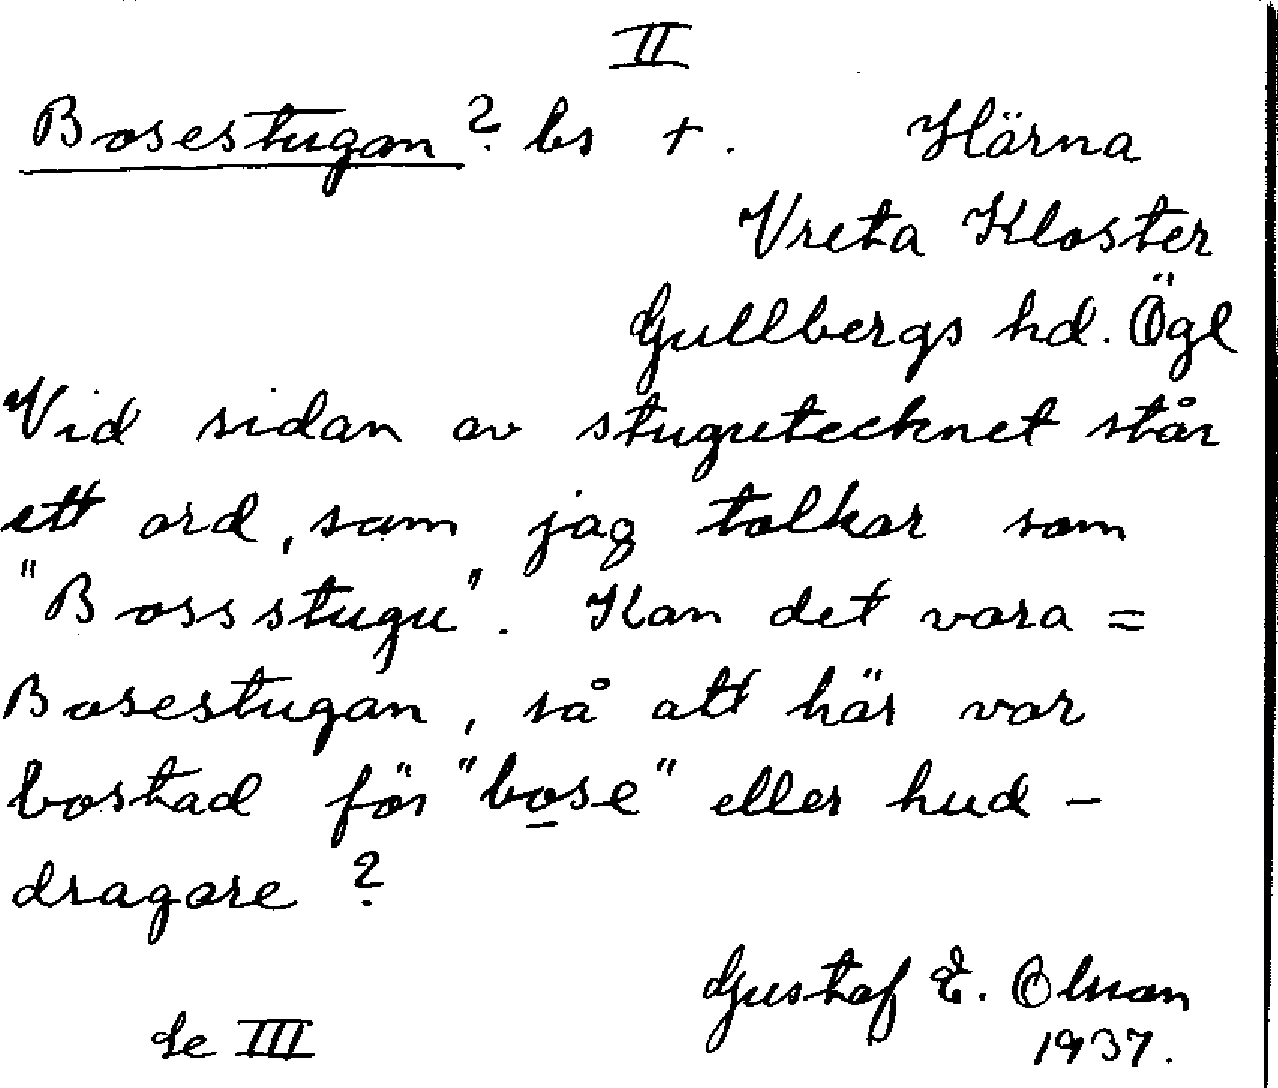 II
Bosestugan? bs +. Härna
Vreta Kloster
Gullbergs hd. Ögl
Vid sidan av stugutecknet står
ett ord, som jag tolkar som
"Bossstugu". Kan det vara =
Bosestugan, så att här var
bostad för "bose" eller hud-
dragare?
Gustaf E. Olson
Se III 1937.